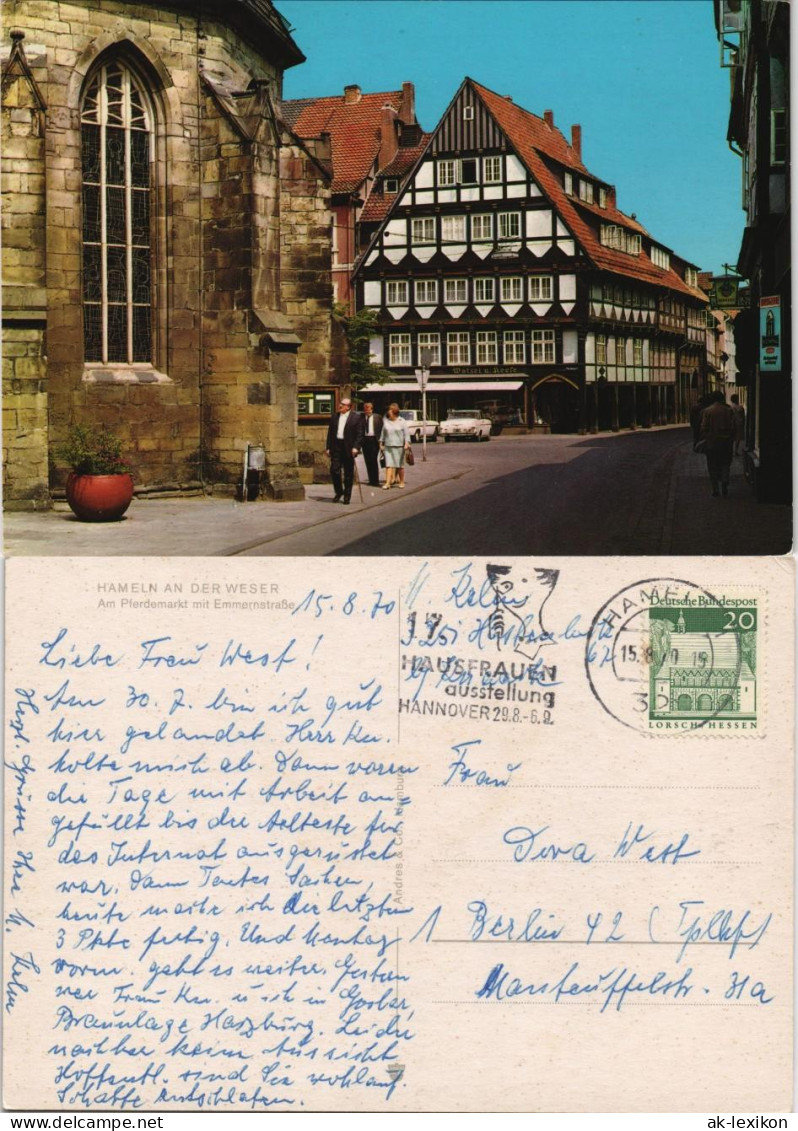 HAMELN AN DER WESER
Am Pferdemarkt mit Emmernstraße
15. 8. 70
Liebe Frau West!
Am 30. 7. bin ich gut
hier gelandet. Herr Ku.
holte mich ab. Dann waren
die Tage mit Arbeit an-
gefüllt bis die Aelteste für
das Internat ausgerüstet
war. Dann Sachen,
heute mache ich die letzten
3 fertig. Und Montag
vorm. geht es weiter. Gestern
war Frau Ku. u. ich in Goslar,
Braunlage Harzburg. Leider
nachher keine Aussicht
Hoffentl. sind Sie wohlauf.
Schatte entschlafen.
Herzl. Grüsse Ihre
17.
HAUSFRAUEN
ausstellung
HANNOVER 29.8.-6.9.
HAMELN 1
15.-8.70-15
Deutsche Bundespost
20
LORSCH/HESSEN
Andres & Co., Hamburg
Frau
Dora West
1 Berlin 42 (Tplhf)
Manteuffelstr. 31a
ak-lexikon